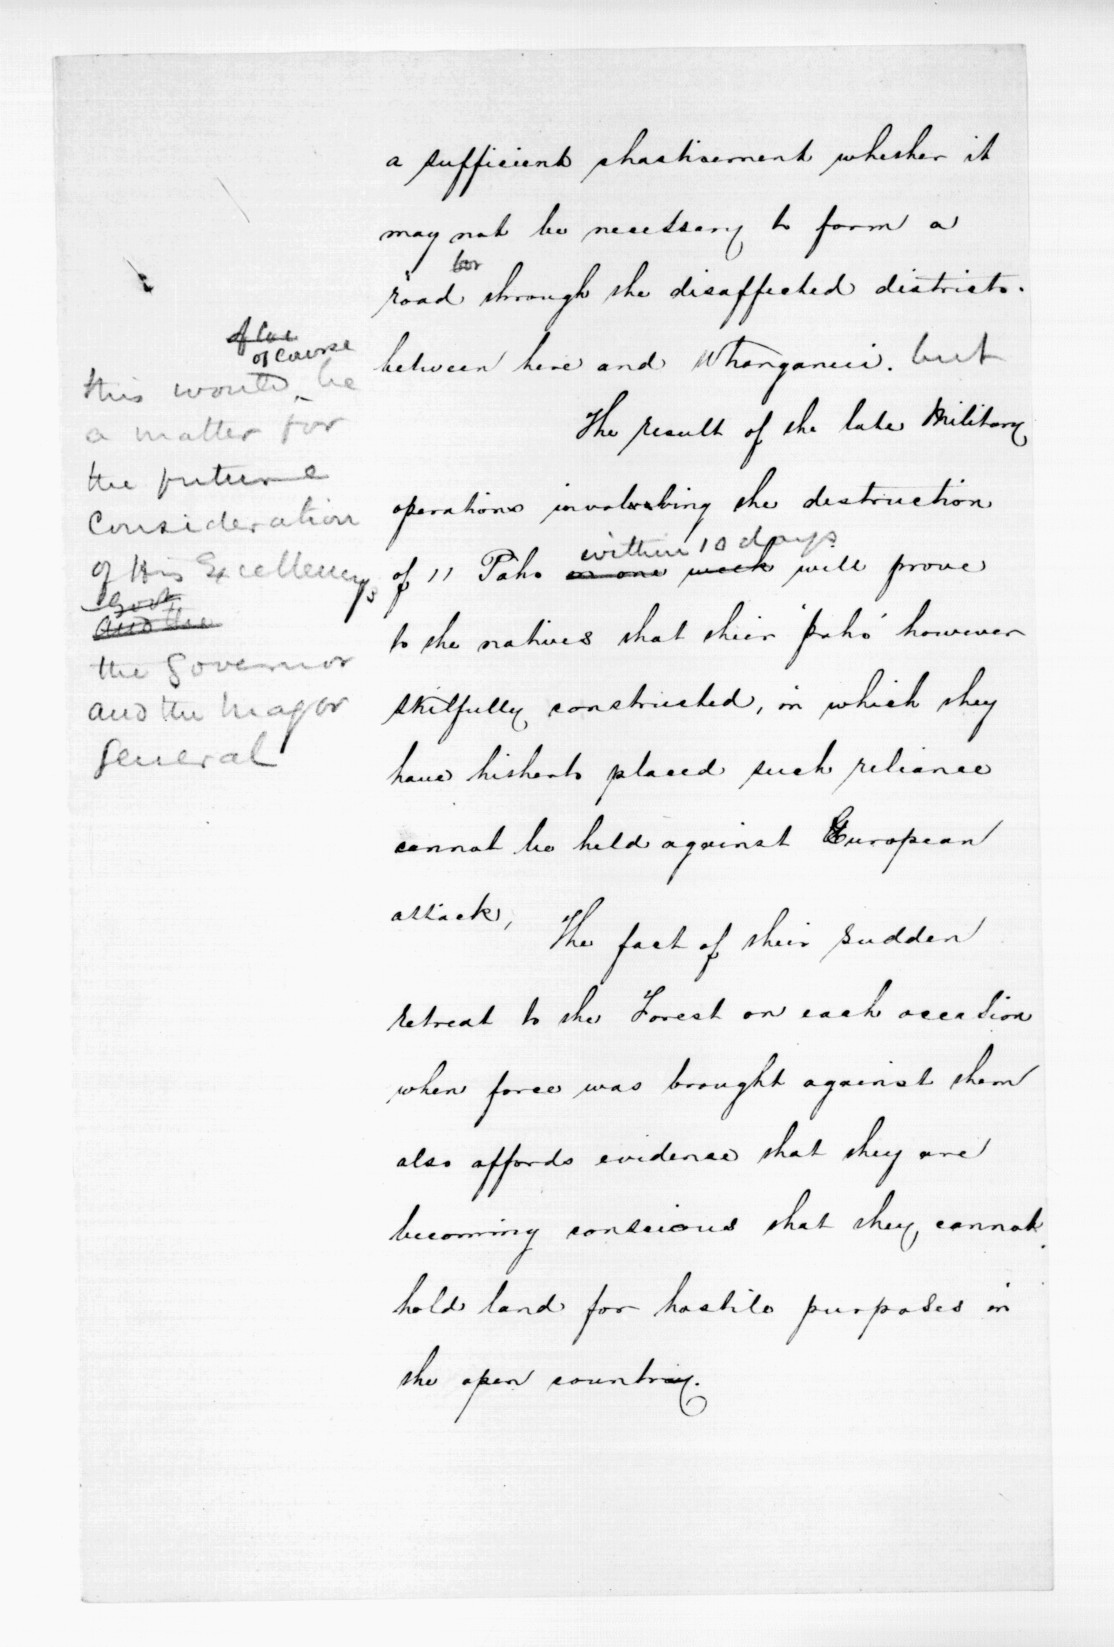 a sufficient chastisement whether it
may not be necessary to form a
road through the disaffected districts.
between here and Whanganui. but
of course
this would be
a matter for
the future
consideration
of His Excellency
and the
the Governor
and the Major
General
The result of the late Military
operations involving the destruction
within 10 days
of 11 Pahs in one week will prove
to the natives that their 'pahs' however
skilfully constructed, in which they
have hitherto placed such reliance
cannot be held against European
attack,
The fact of their sudden
retreat to the Forest on each occasion
when force was brought against them
also affords evidence that they are
becoming conscious that they cannot
hold land for hostile purposes in
the open country.